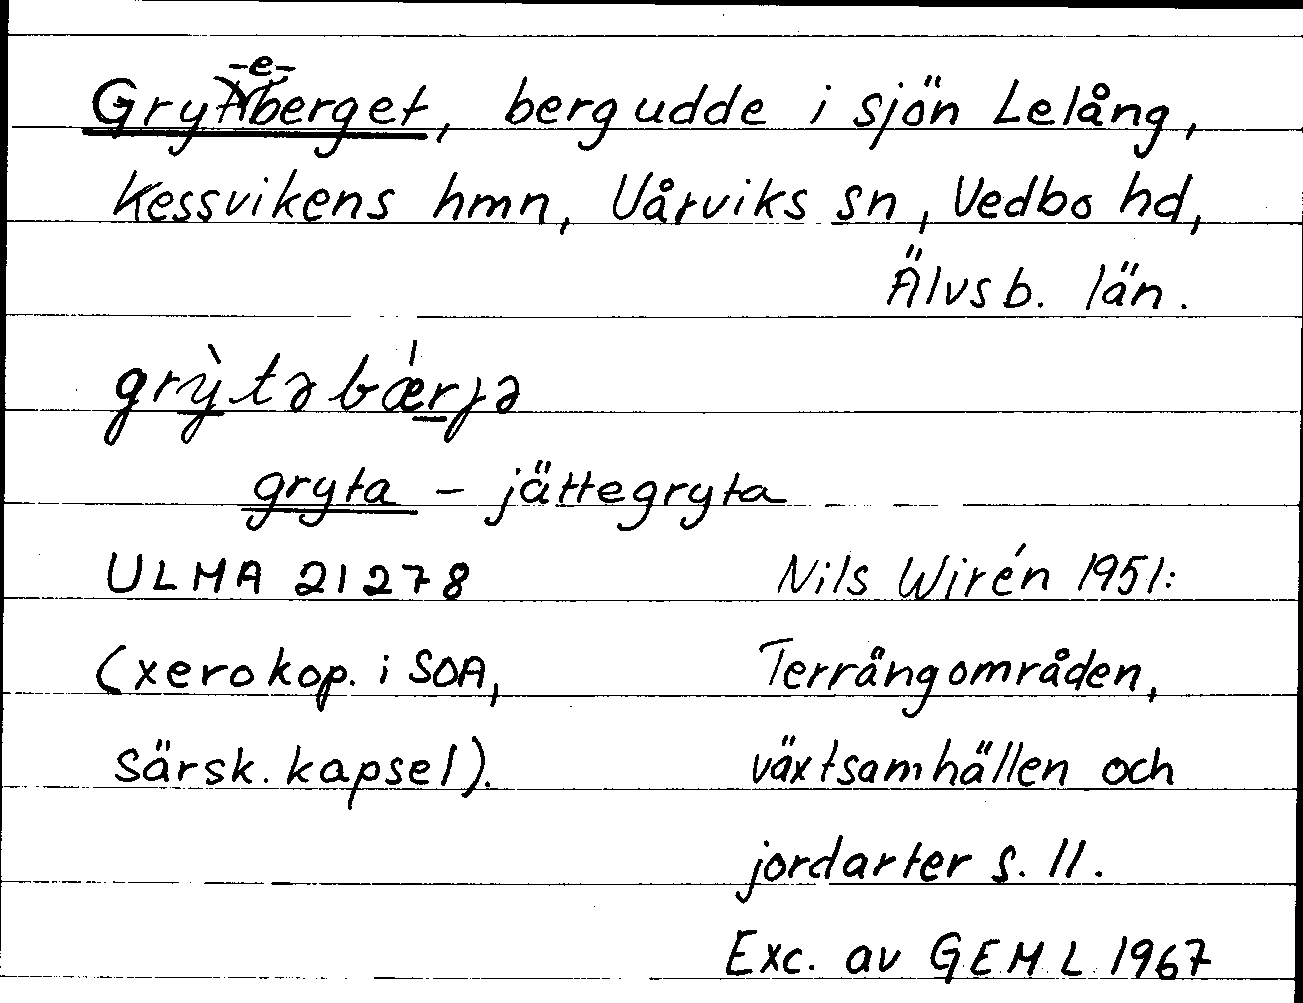 -e-
Grytberget, bergudde i sjön Lelång,
Kessvikens hmn, Vårviks sn, Vedbo hd,
Älvsb. län.
grỳtəbǽrjə
gryta - jättegryta
ULMA 21278 Nils Wirén 1951:
(xerokop. i SOA, Terrängområden,
särsk. kapsel). växtsamhällen och
jordarter s. 11.
Exc. av GEML 1967